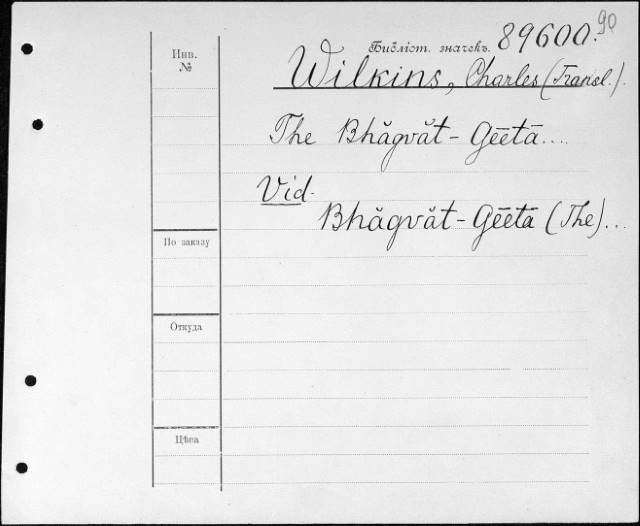 90
Инв.
№
Библіот. значекъ. 89600.
Wilkins, Charles (Transl.).
The Bhăgvăt-Gēētā....
Vid.
Bhăgvăt-Gēētā (The)...
По заказу
Откуда
Цѣна